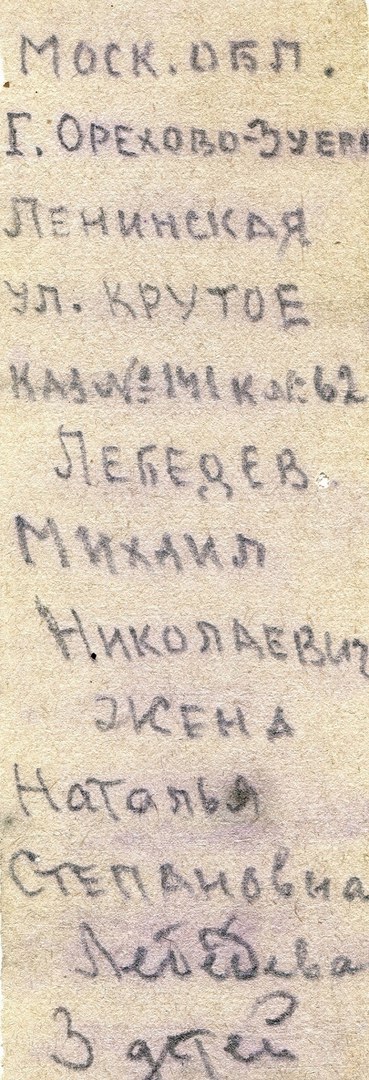 МОСК. ОБЛ.
Г. ОРЕХОВО-ЗУЕВО
ЛЕНИНСКАЯ
УЛ. КРУТОЕ
КАЗ № 141 К № 62
ЛЕБЕДЕВ.
МИХАИЛ
НИКОЛАЕВИЧ
ЖЕНА
Наталья
СТЕПАНОВна
Лебедева
3 детей